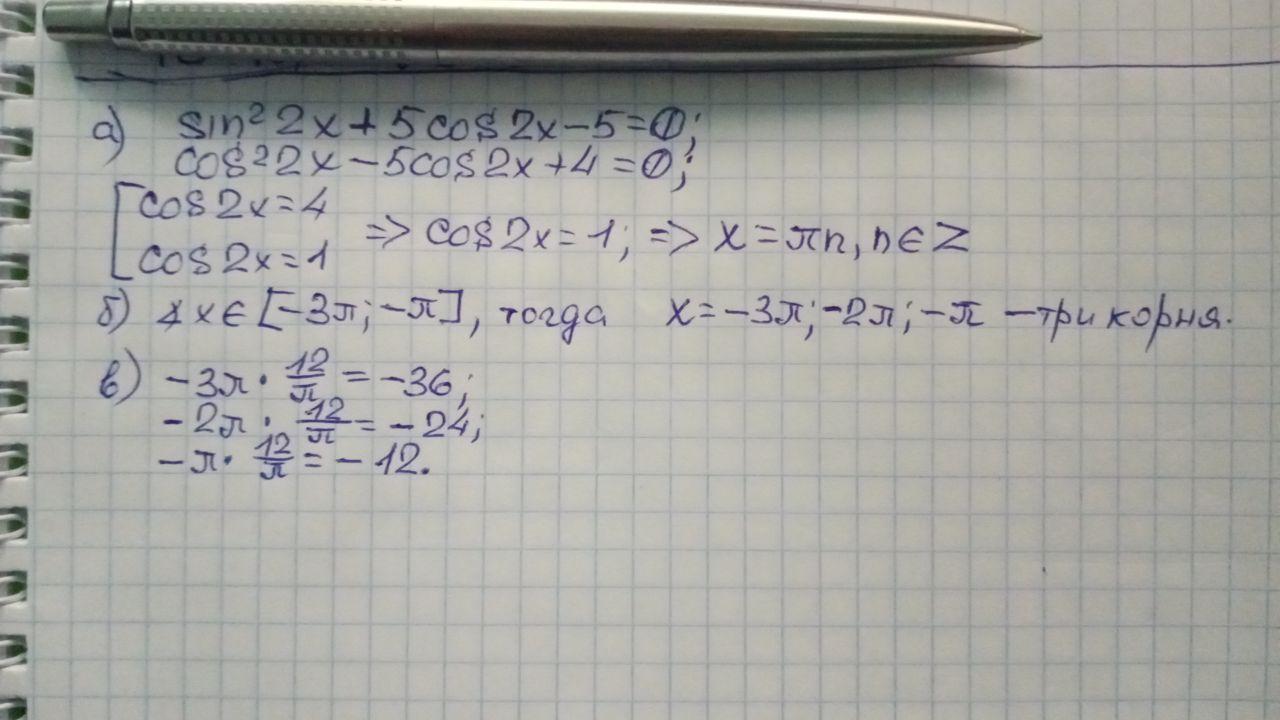 а) sin² 2x + 5cos 2x − 5 = 0;
cos² 2x − 5cos 2x + 4 = 0;
[ cos 2x = 4
cos 2x = 1 => cos 2x = 1; => x = πn, n ∈ Z
б) x ∈ [−3π; −π], тогда x = −3π; −2π; −π − три корня.
в) −3π · 12/π = −36;
−2π · 12/π = −24;
−π · 12/π = −12.